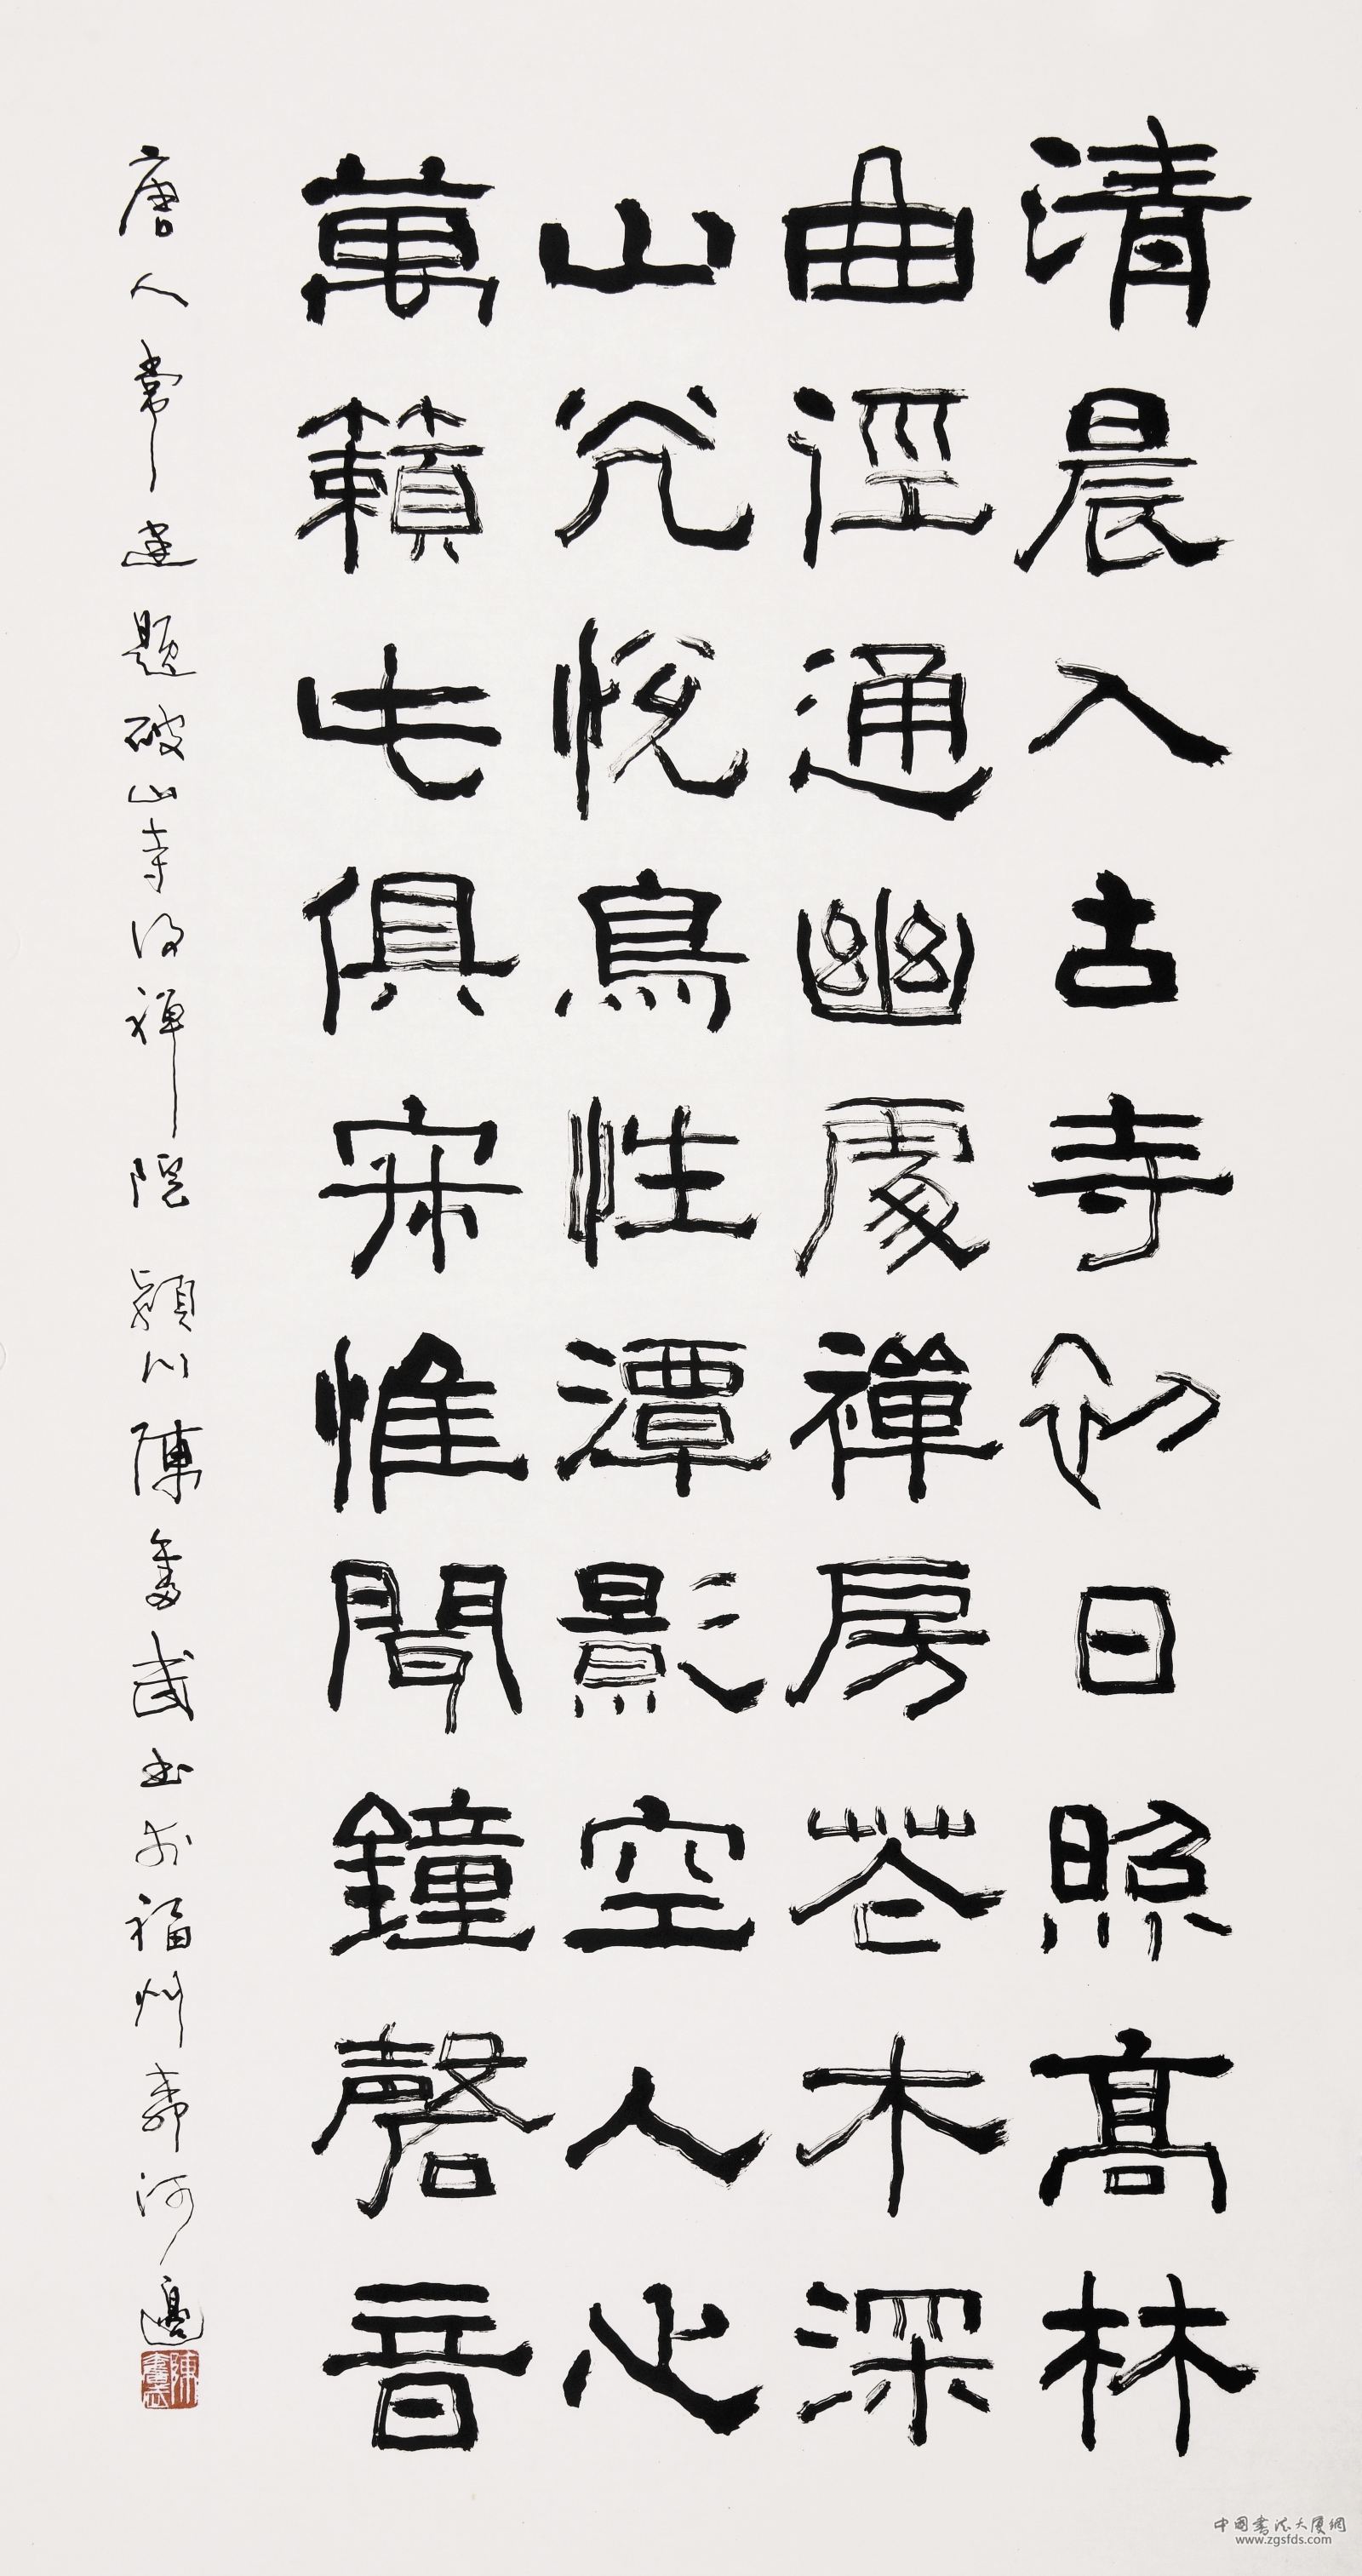 清晨入古寺初日照髙林
曲徑通幽處禪房花木深
山光悅鳥性潭影空人心
萬籟此俱寂惟聞鐘磬音
唐人常建題破山寺后禪院 潁川陳奮武书於福州壽河邊
陳奮武
中國書法大廈網
www.zgsfds.com